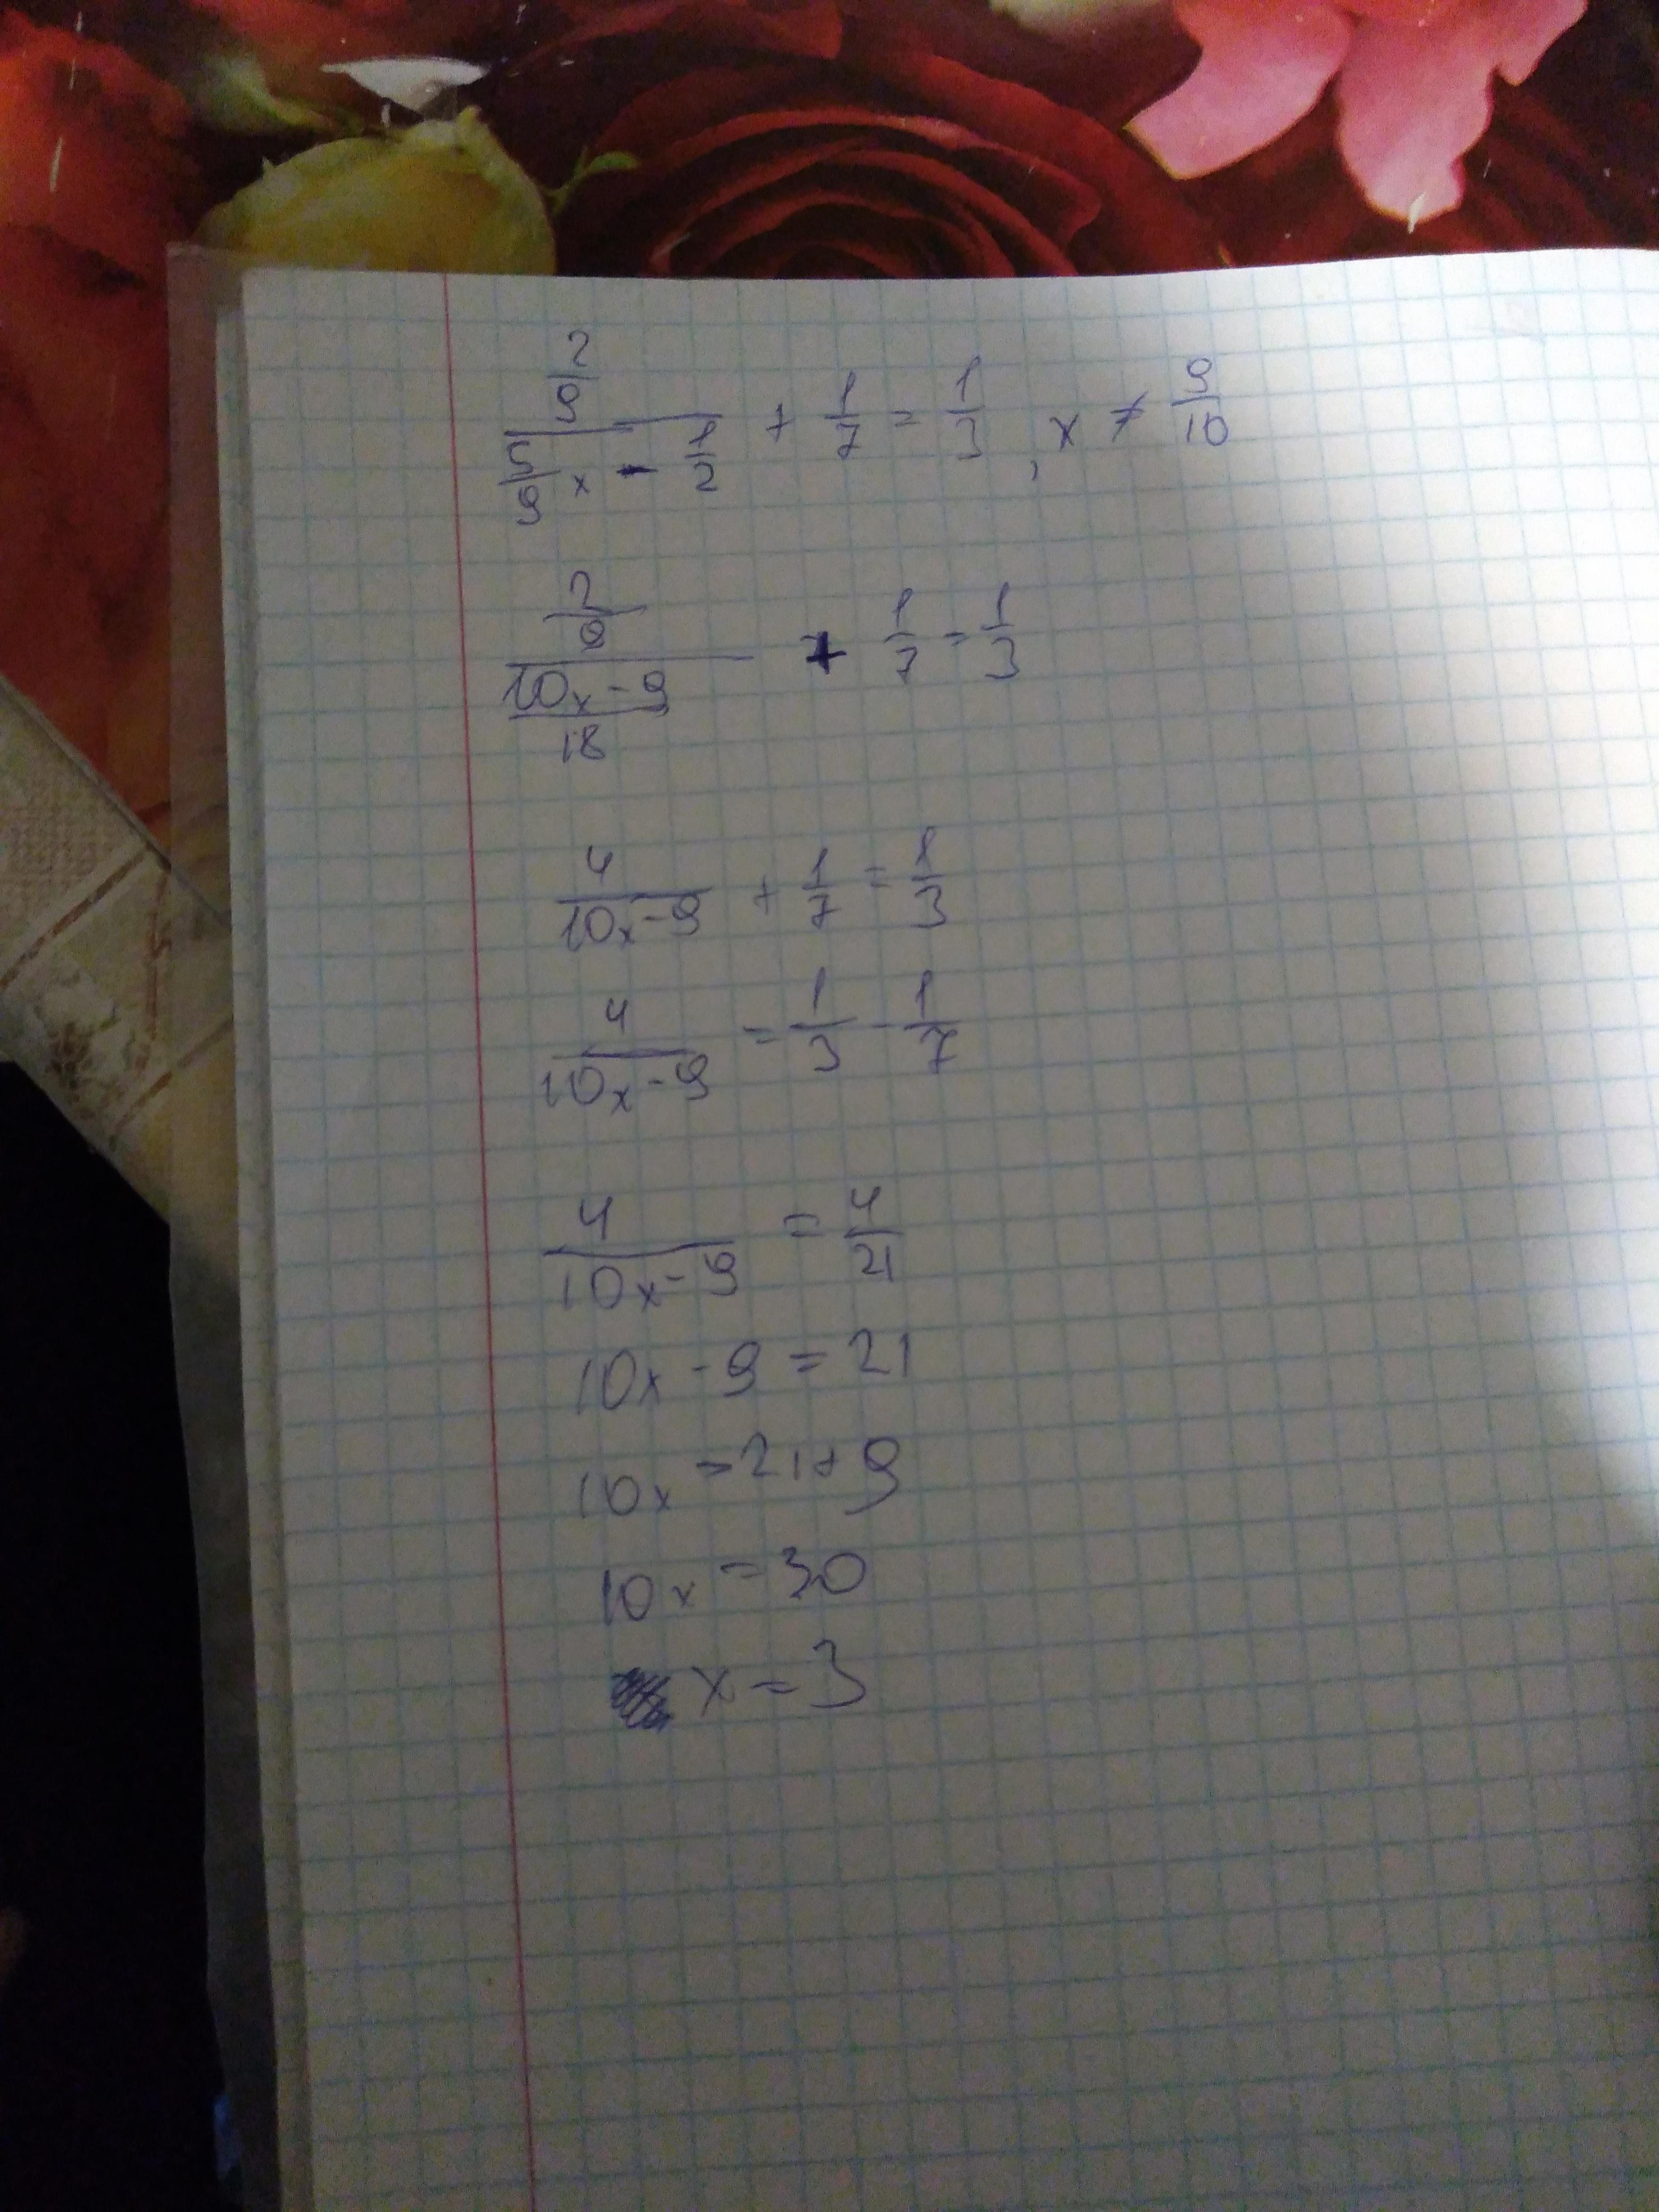 2/9 / (5/9 x - 1/2) + 1/7 = 1/3, x ≠ 9/10
2/9 / ((10x-9)/18) + 1/7 = 1/3
4/(10x-9) + 1/7 = 1/3
4/(10x-9) = 1/3 - 1/7
4/(10x-9) = 4/21
10x - 9 = 21
10x = 21 + 9
10x = 30
x = 3